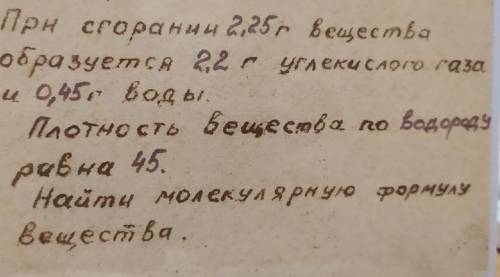 При сгорании 2,25г вещества
образуется 2,2 г углекислого газа
и 0,45г воды.
Плотность вещества по водороду
равна 45.
Найти молекулярную формулу
вещества.